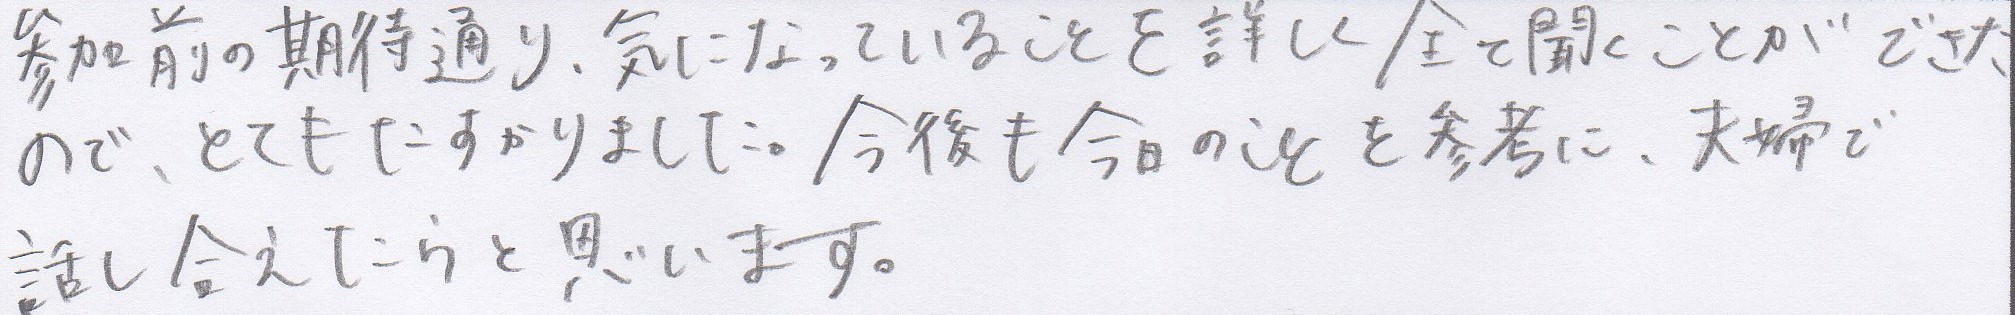 参加前の期待通り、気になっていることを詳しく全て聞くことができた
ので、とてもたすかりました。今後も今日のことを参考に、夫婦で
話し合えたらと思います。